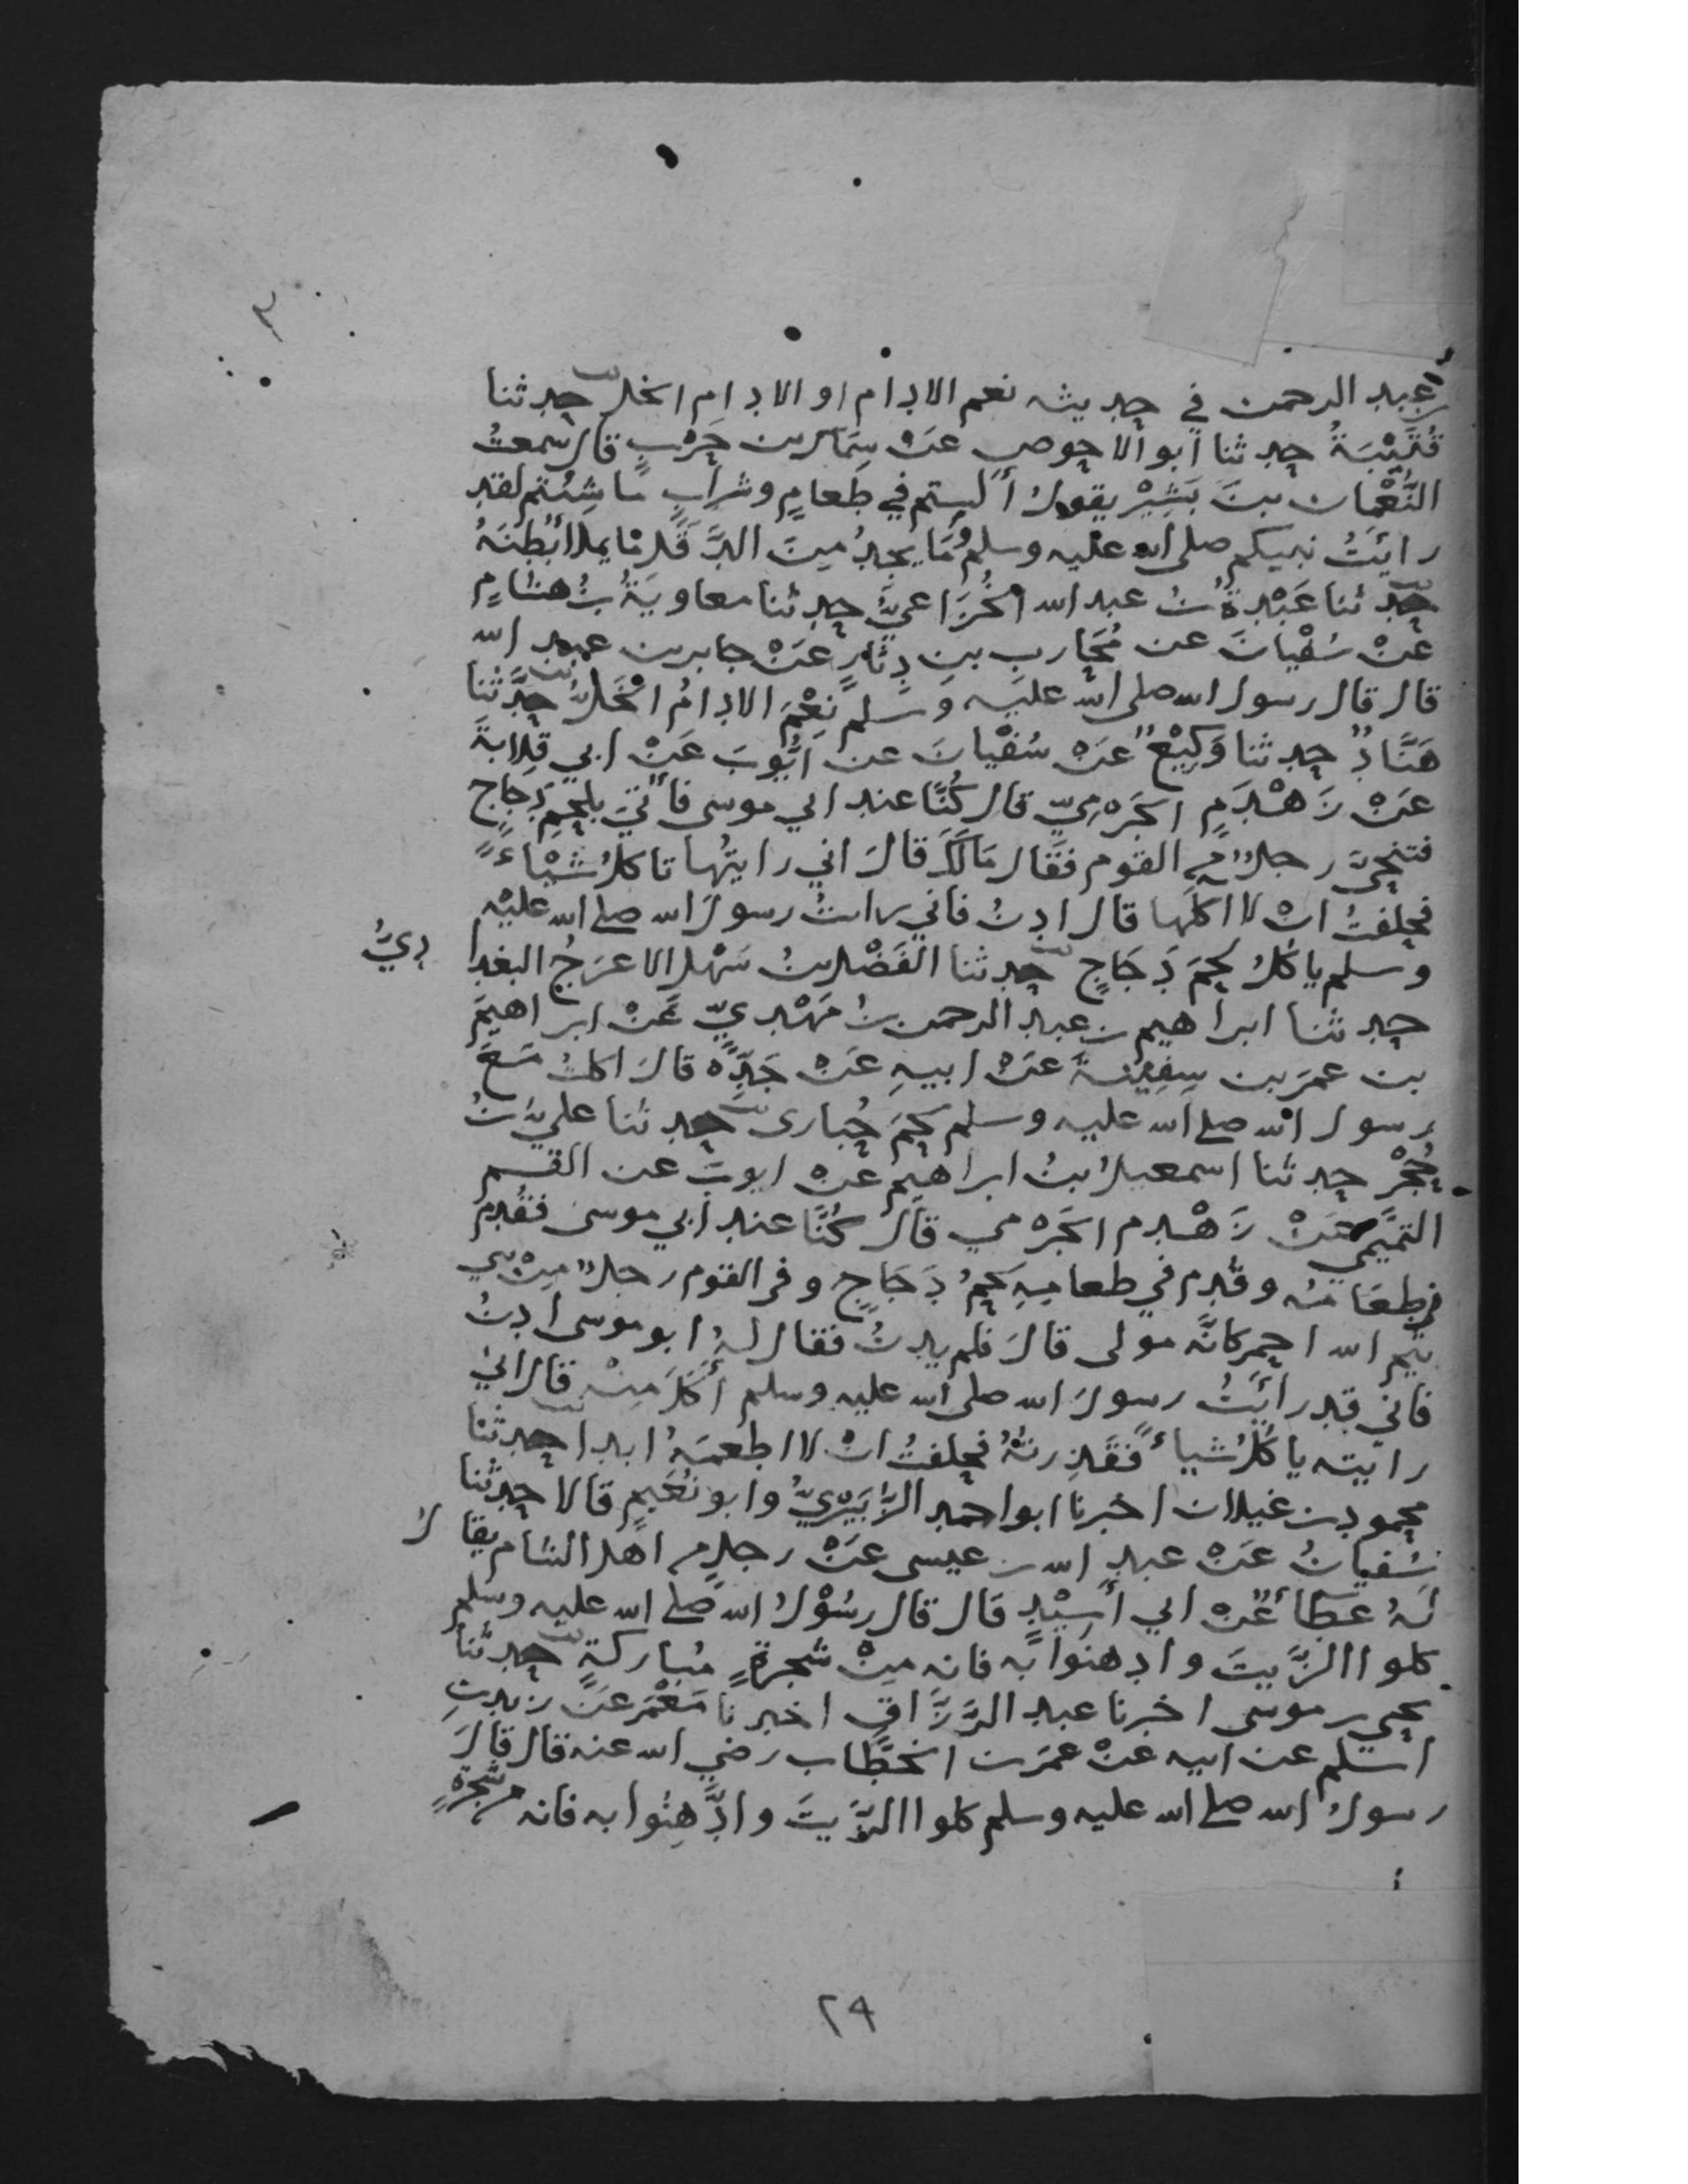 ٣
عبد الرحمن في حديثه نعم الادام او الادام الخل حدثنا
قُتَيْبَةُ حدثنا ابو الاحوص عَنْ سِمَاك بن حَرْبٍ قال سمعتُ
النُّعْمان بنَ بَشِيْر يقولُ أَلستم في طَعامٍ وشرابٍ ما شِئتم لقد
رايَتُ نبيكم صلى الله عليه وسلم وَمَا يجدُ مِنَ الدَّقَل ما يملأ بَطْنَهُ
حدثنا عَبْدةُ بنُ عبد الله الخُزَاعيُّ حدثنا معاويَةُ بنُ هشامٍ
عَنْ سُفْيانَ عن مُحَاربِ بنِ دِثارٍ عَنْ جابر بن عبد الله
قال قال رسول الله صلى الله عليه وَسَلم نِعْمَ الادامُ الخَلُّ حدَّثنا
هَنَّادٌ حدثنا وَكِيْعٌ عَنْ سُفْيانَ عن ايُّوبَ عَنْ ابي قِلابةَ
عَنْ زَهْدَمٍ الجَرْمِيّ قال كُنَّا عند ابي موسى فأُتيَ بلحمِ دَجَاجٍ
فتنحَّى رجلٌ من القوم فقال مَالَكَ قالَ اني رايتُها تاكلُ شَيْاءً
فحلفتُ انْ لا اكلَها قال ادنُ فاني رايتُ رسولَ الله صلى الله عليْه
وسلم ياكُلُ لحمَ دَجَاجٍ حدثنا الفَضْل بنُ سَهْل الاعرَجُ البغدا ديُّ
حدثنا ابراهيم بن عبد الرحمن بنُ مَهْديّ عَنْ ابراهيمَ
بن عمرَ بن سفِيْنةَ عَنْ ابيهِ عَنْ جَدِّه قالَ اكلتُ مَعَ
رسول الله صلى الله عليه وسلم لحمَ حُبارى حدثنا علي بنُ
حُجْرٍ حدثنا اسمعيلُ بنُ ابراهيمَ عَنْ ايوبَ عن القسم
التميمي عَنْ زَهْدم الجَرْمي قالَ كُنَّا عند ابي موسى فقُدِّمَ
طعَامُه وقُدِّم في طعامِهِ لحمُ دَجَاجٍ وفي القوم رجلٌ مِنْ بني
تيم الله احمر كانَّه مولى قالَ فلم يدنُ فقال لهُ ابو موسى ادنُ
فاني قد رايَتُ رسولَ الله صلى الله عليه وسلم أَكَلَ مِنْه قال اني
رايته ياكُلُ شياءً فقَذِرتُهُ فحلفتُ انْ لا اطعمَهُ ابدا حدثنا
محمود بن غيلان اخبرنا ابو احمد الزُّبَيْريُّ وابو نُعَيمٍ قالا حدثنا
سُفيانُ عَنْ عبدِ الله بن عيسى عَنْ رجلٍ من اهل الشام يقا لُ
لهُ عَطَاءٌ عَنْ ابي أَسِيْدٍ قال قال رسُوْلُ الله صلى الله عليه وسلم
كلوا الزَّيتَ وادهنوا به فانه مِنْ شجرةٍ مُباركةٍ حدثنا
يحيى بن موسى اخبرنا عبد الرَّزَّاقِ اخبرنا مَعْمَر عَنْ زيد بنِ
اسْلم عن ابيه عَنْ عمَرَ بن الخطَّاب رضي الله عنه قال قالَ
رسولُ الله صلى الله عليه وسلم كلوا الزَّيتَ وادَّهِنُوا به فانه من شجرَةٍ
٢٩